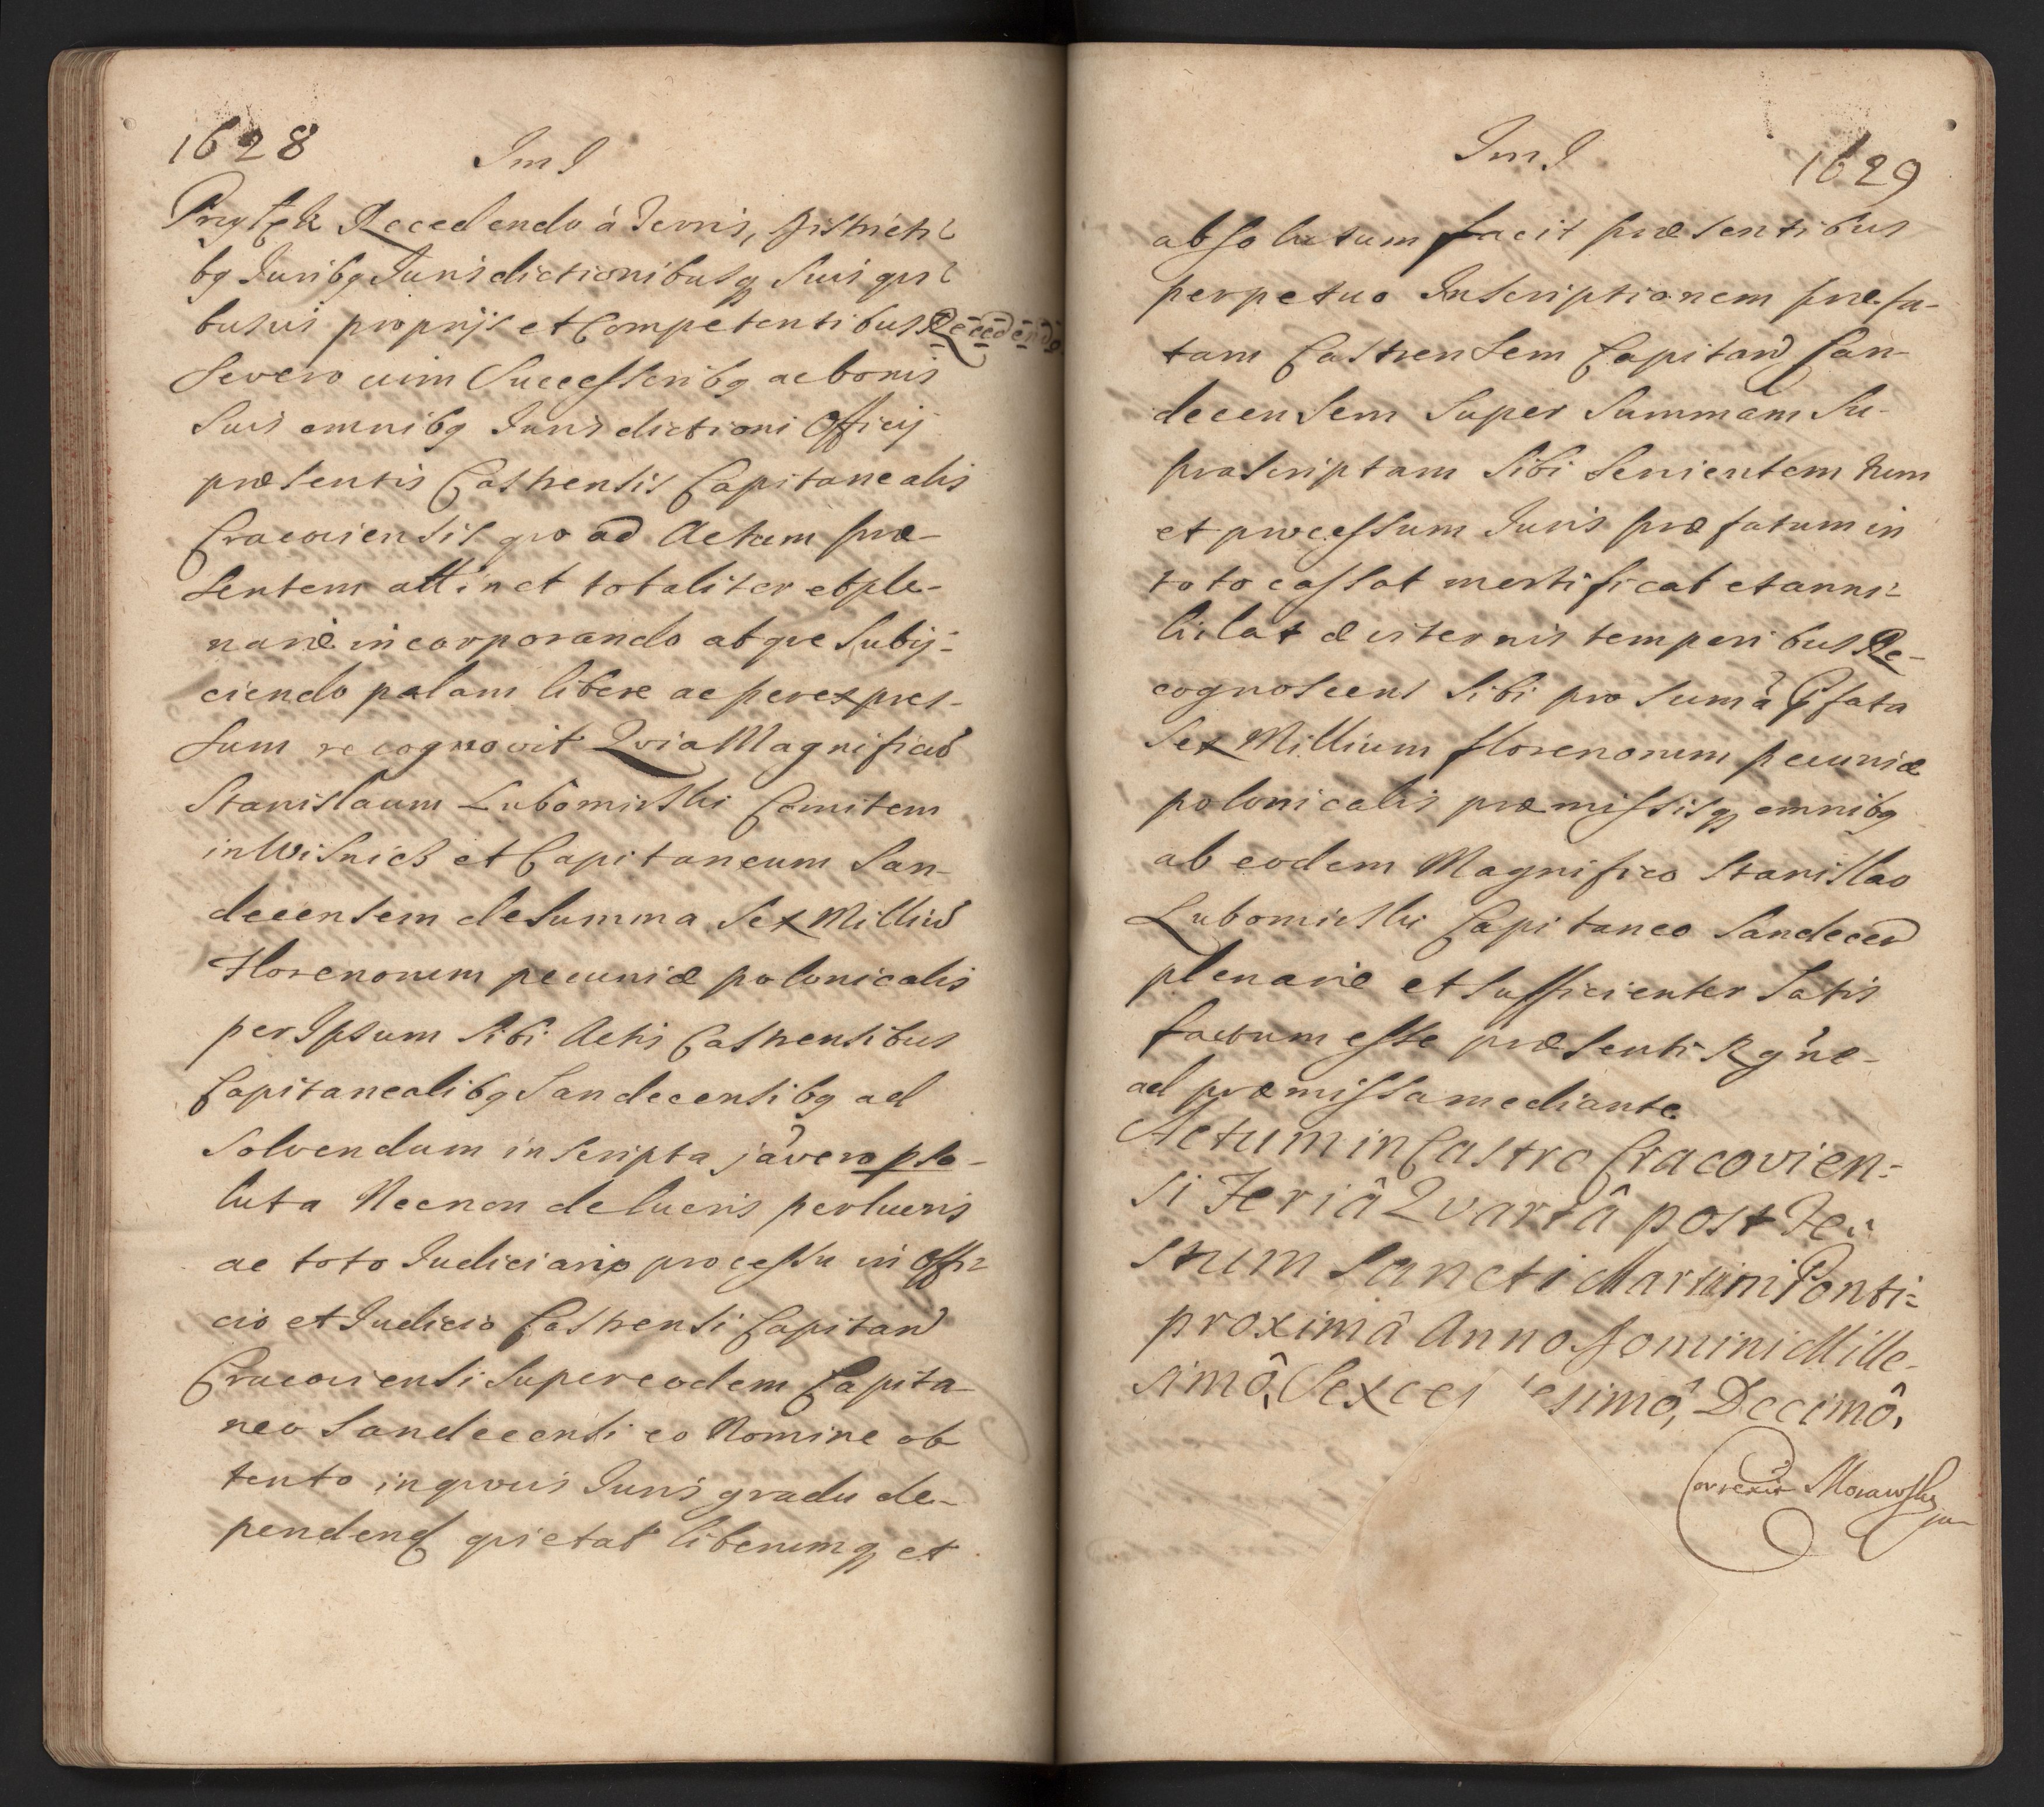 1628
Im I
Przytyk Recedendo á Terris, Districti-
bq Juribq Jurisdictionibusq Suis qui-
busvis proprijs et Competentibus Recedendo
Severo cum Successoribq ac bonis
Suis omnibq Jurisdictioni Officij
præsentis Castrensis Capitanealis
Cracoviensis quo ad Actum præ-
sentem attinet totaliter et ple-
nariè incorporando atque Subij-
ciendo palam libere ac per expres-
sum recognovit Quia Magnificũ
Stanislaum Lubomirski Comitem
in Wisnicz et Capitaneum San-
decensem de Summa Sex Milliũ
Florenorum pecuniæ polonicalis
per Ipsum Sibi Actis Castrensibus
Capitanealibq Sandecensibq ad
Solvendum inscripta jã vero pso-
luta Necnon de lucris perlucris
ac toto Judiciario processu in Offi-
cio et Judicio Castrensi Capitan
Cracoviensi Super eodem Capita-
neo Sandecensi eo Nomine ob
tento in quovis Juris gradu de-
penden quietat liberumq et
Im I
1629
absolutum facit præsentibus
perpetuo Inscriptionem præfa-
tam Castrensem Capitan San-
decensem Super Summam Su-
prascriptam Sibi Servientem tum
et processum Juris præfatum in
toto cassat mortificat et anni-
hilat æviternis temporibus Re-
cognoscens Sibi pro sumã Pfata
Sex Millium florenorum pecuniæ
polonicalis præmissisq omnibq
ab eodem Magnifico Stanislao
Lubomirski Capitaneo Sandecen
plenariè et Sufficienter Satis
factum esse præsenti Rgne
ad præmissa mediante
Actum in Castro Cracovien-
si Feriâ Quartâ post Fe-
stum Sancti Martini Ponti-
proximâ Anno Domini Mille-
simô, Sexcen esimô, Decimô,
Correxit Morawski